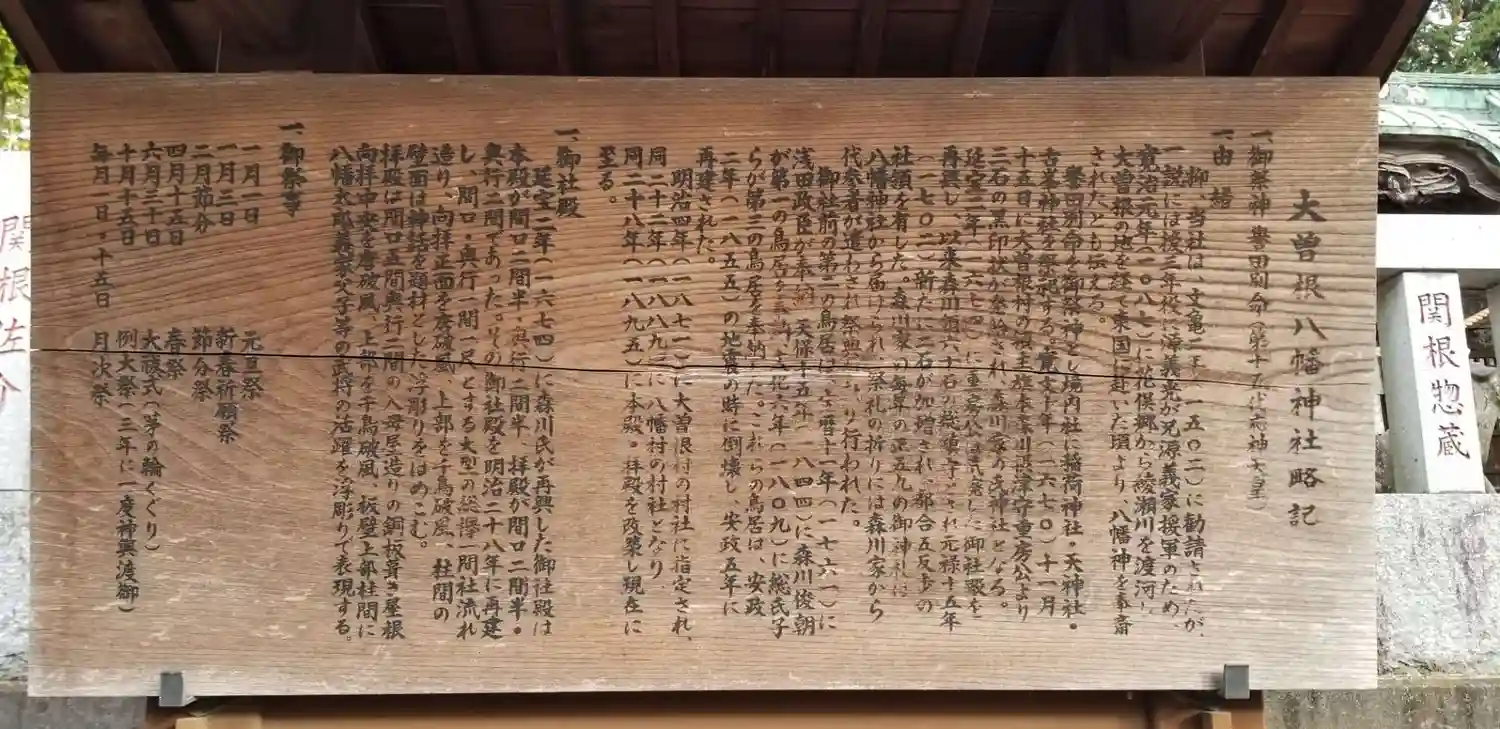 大曽根八幡神社略記
一、御祭神 誉田別命(第十五代応神天皇)
一、由緒
抑、当社は、文亀二年(一五〇二)に勧請されたが、
一説には後三年役に源義光が兄源義家援軍のため、
寛治元年(一〇八七)に花俣郷から綾瀬川を渡河し
大曽根の地を経て東国に赴いた頃より、八幡神を奉斎
されたとも伝える。
誉田別命を御祭神とし境内社に稲荷神社・天神社・
古峯神社を祭祀する。寛文十年(一六七〇)十一月
十五日に大曽根村の領主 旗本森川摂津守重房公より
三石の黒印状が 森川家の氏神社となる。
延宝二年(一六七四)に重房 した御社殿を
再興し、以来森川領六十石の され元禄十五年
(一七〇二)新たに二石が加増され、都合五反歩の
社領を有した。森川家の毎年の正五九の御神札は
八幡神社から届けられ、祭礼の折りには森川家から
代参者が遣わされ祭典 り行われた。
御社前の第二の鳥居は、宝暦十一年(一七六一)に
浅田政臣が奉納 天保十五年(一八四四)に森川俊朝
が第一の鳥居を 文化六年(一八〇九)に総氏子
らが第三の鳥居を奉納した。これらの鳥居は、安政
二年(一八五五)の地震の時に倒壊し、安政五年に
再建された。
明治四年(一八七一)に大曽根村の村社に指定され、
同二十二年(一八八九)に八幡村の村社となり、
同二十八年(一八九五)に本殿・拝殿を改築し現在に
至る。
一、御社殿
延宝二年(一六七四)に森川氏が再興した御社殿は
本殿が間口二間半、奥行二間半、拝殿が間口二間半・
奥行二間であった。その御社殿を明治二十八年に再建
し、間口・奥行一間一尺とする大型の総欅一間社流れ
造り、向拝正面を唐破風、上部を千鳥破風、柱間の
壁面は神話を題材とした浮彫りをはめこむ。
拝殿は間口五間奥行二間の入母屋造りの銅板葺き屋根
向拝中央を唐破風、上部を千鳥破風、板壁上部柱間に
八幡太郎義家父子等の武将の活躍を浮彫りで表現する。
一、御祭等
一月一日 元旦祭
一月三日 新春祈願祭
二月節分 節分祭
四月十五日 春祭
六月三十日 大祓式(茅の輪くぐり)
十月十五日 例大祭(三年に一度神輿渡御)
毎月一日・十五日 月次祭
関根惣蔵
関根佐